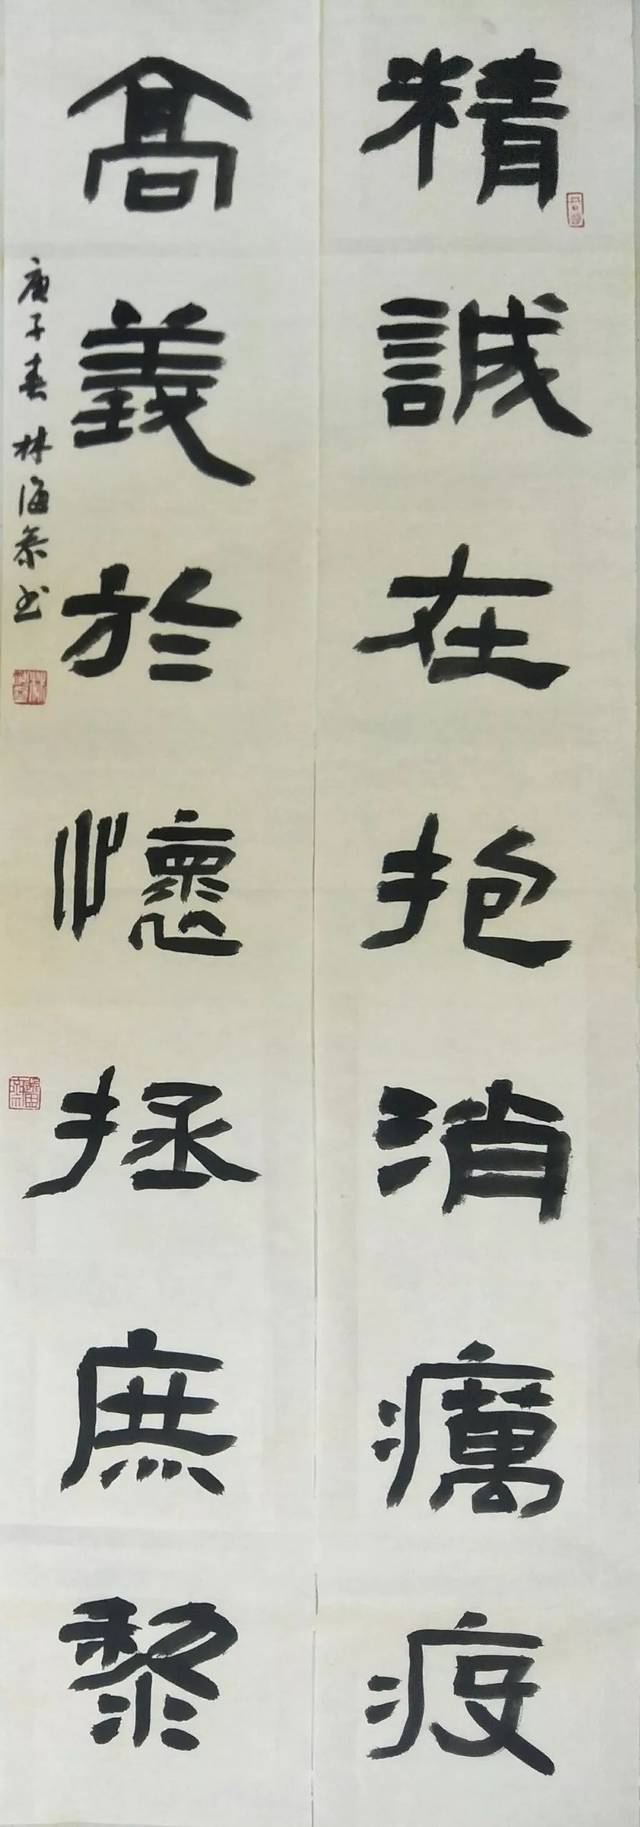 精誠在抱消癘疫
高義於懷拯庶黎
庚子春 林海泰书